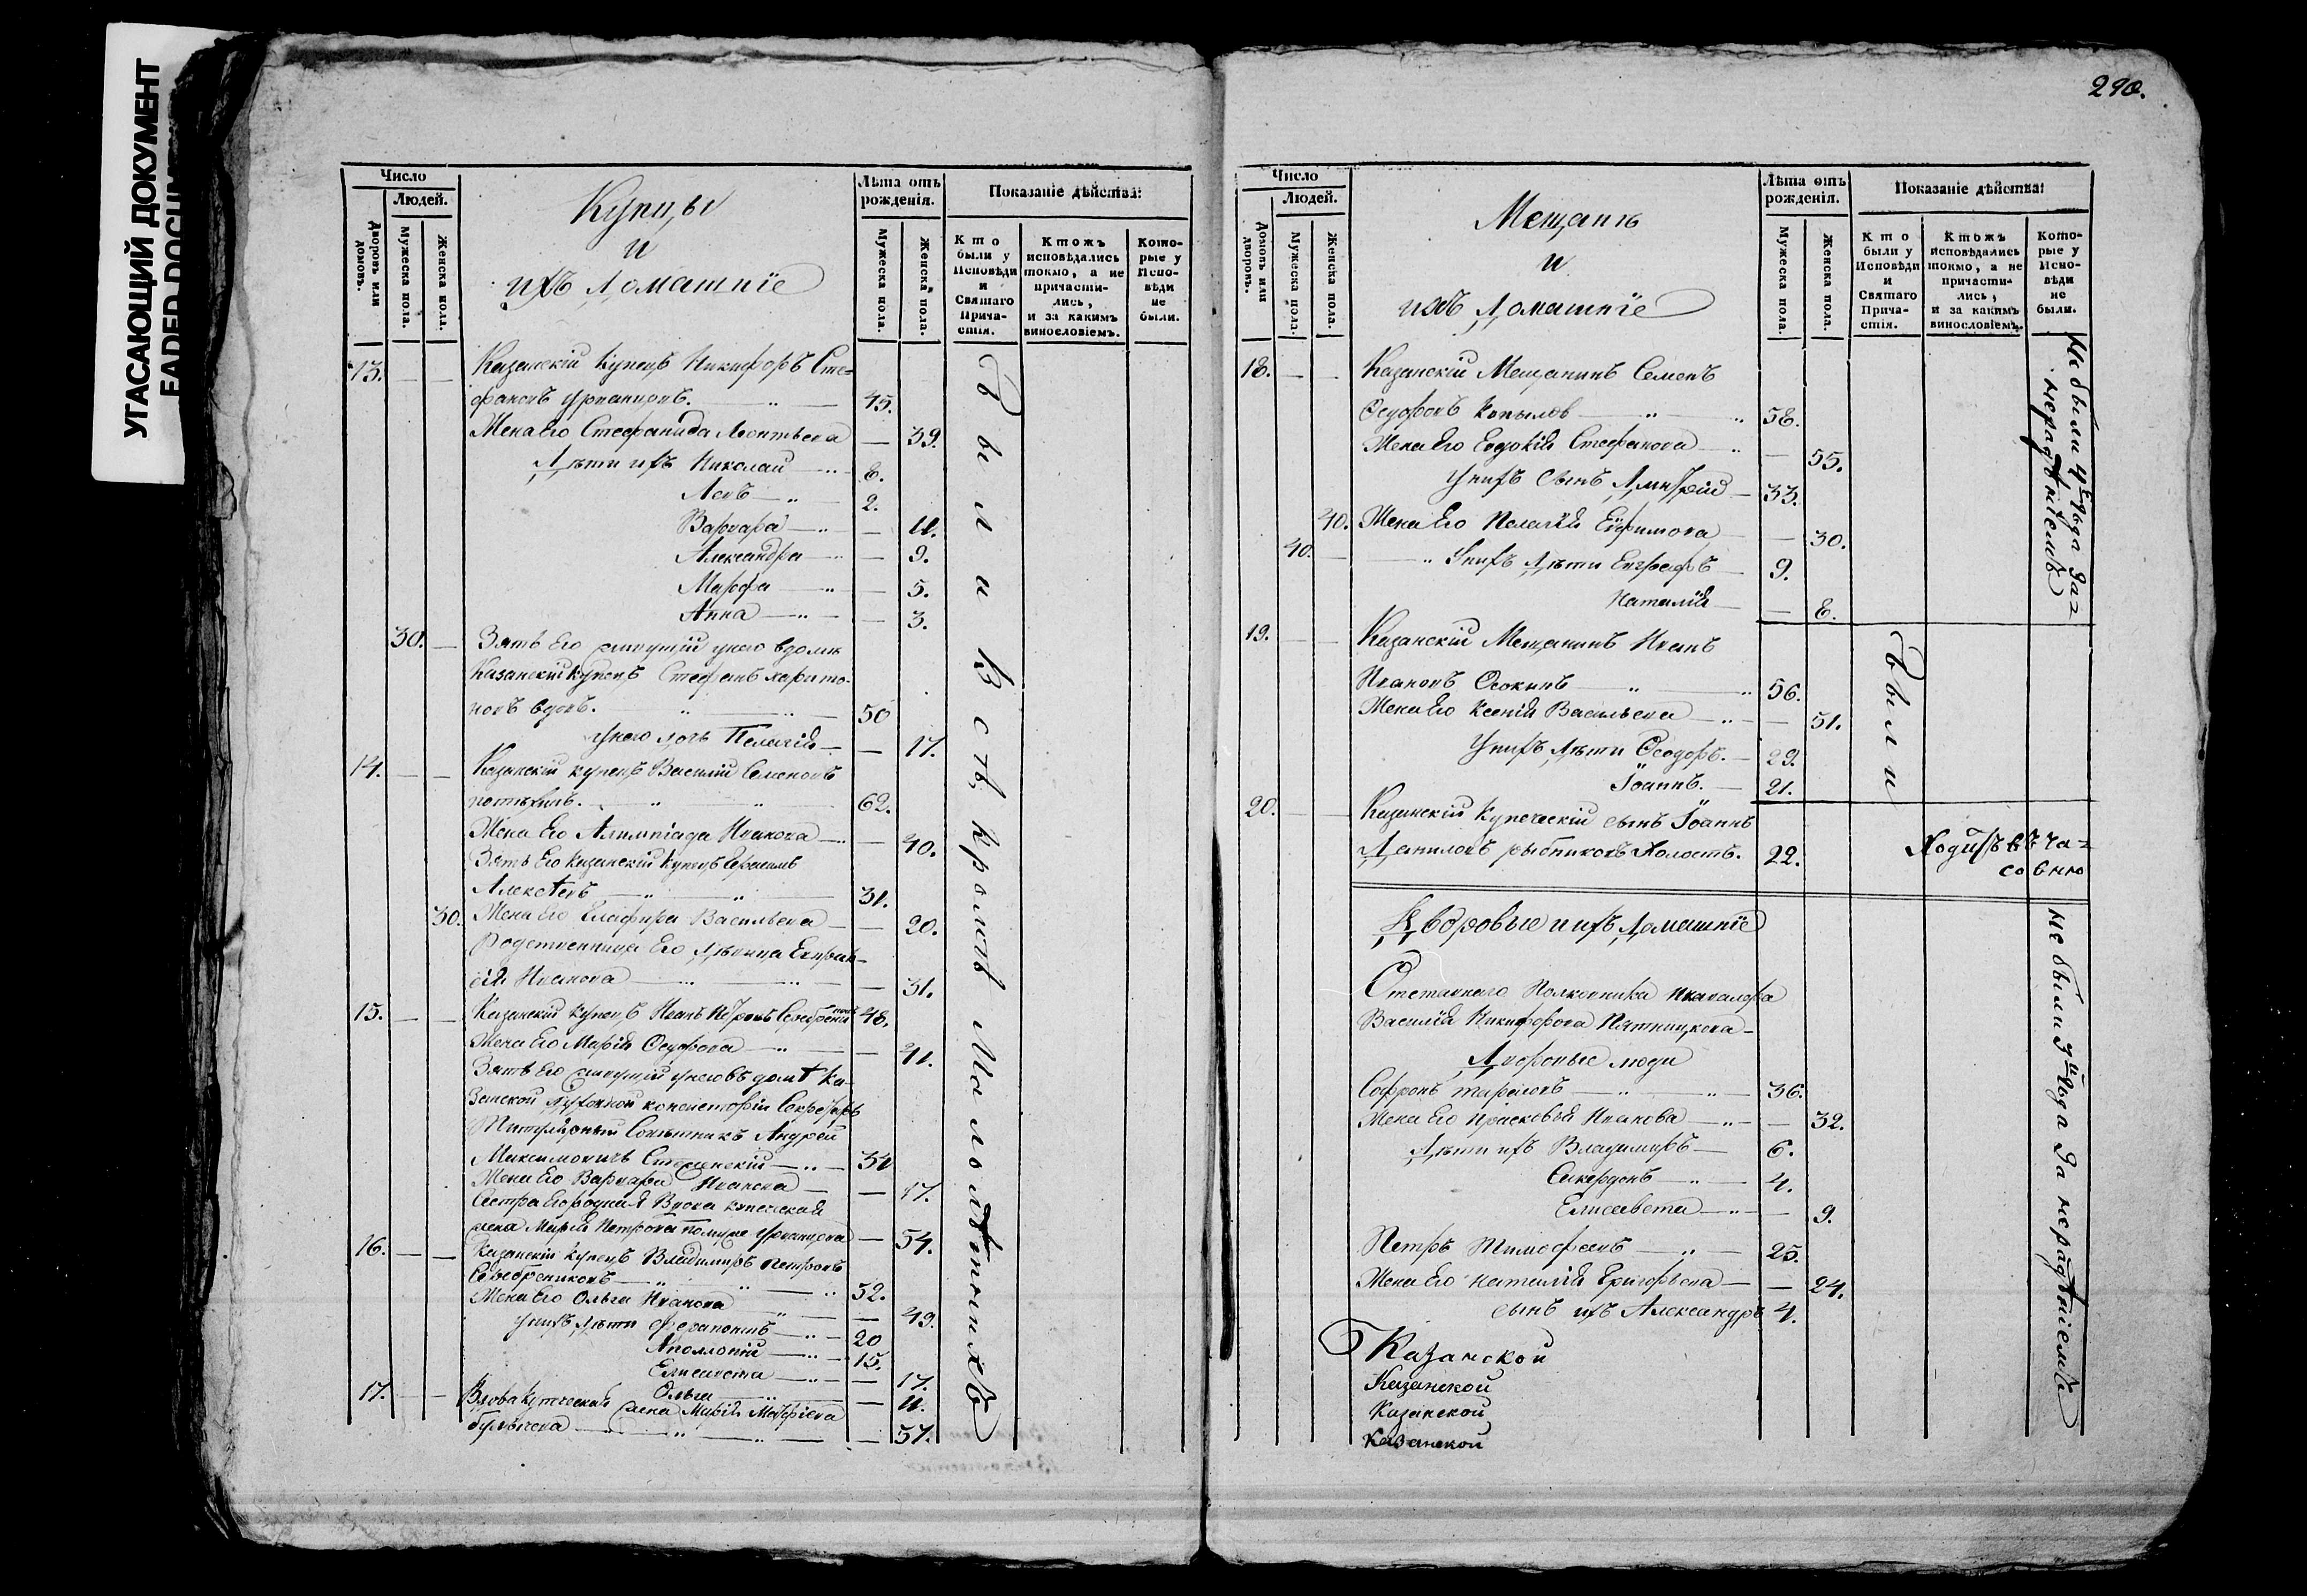 УГАСАЮЩИЙ ДОКУМЕНТ
FADED DOCUM
Число
Людей.
Дворовъ или домовъ.
Мужеска пола.
Женска пола.
Купцы
и
ихъ Домашніе
Лѣта отъ рожденія.
Мужеска пола.
Женска пола.
Показаніе дѣйства:
Кто были у Исповѣди и Святаго Причастія.
Ктожъ исповѣдались токмо, а не причастились, и за какимъ винословіемъ.
Которые у Исповѣди не были.
13. — — Казанскій Купецъ Никифоръ Сте-
фановъ Урванцовъ. 45.
Жена Его Стефанида Леонтьева — 39.
Дѣти ихъ Николай 8.
Левъ 2.
Варвара — 11.
Александра — 9.
Марфа — 5.
Анна — 3.
30. — Зять Его живущій унего вдомѣ
Казанскій Купецъ Стефанъ харито-
новъ вдовъ. 50
Унего дочь Пелагія — 17.
14. — — Казанскій купецъ Василій Семеновъ
62.
Жена Его Алимпіада Иванова — 40.
Зять Его Казанскій Купецъ Герасимъ
Алексѣевъ 31.
30. Жена Его Глафира Васильева — 20.
Родственница Его Дѣвица Евфра-
сія Иванова — 31.
15. — — Казанскій купецъ Иванъ Петровъ Серебрениковъ 48.
Жена Его Марія Осифова — 41.
Зять Его живущій унеговъ домѣ Ка-
занской Духовной консисторіи Секретарь
Титулярный Совѣтникъ Андрей
Максимовичъ 34
Жена Его Варвара Иванова — 17.
Сестра Егородная Вдова купеческая
жена Марія Петрова помуже Урванцова — 54.
16. — — Казанскій купецъ Владимиръ Петровъ
Серебрениковъ 52.
Жена Его Ольга Иванова — 49.
Унихъ Дѣти Ферапонтъ 20
Аполлоній 15.
Елисавета — 17.
Ольга — 11.
17. — — Вдова Купеческая жена Марія Матфіева
— 57.
Были Всѣ, кромѣ Малолѣтнихъ
290.
Число
Людей.
Домовъ или дворовъ.
Мужеска пола.
Женска пола.
Мещанѣ
и
ихъ Домашніе
Лѣта отъ рожденія.
Мужеска пола.
Женска пола.
Показаніе дѣйства:
Кто были у Исповѣди и Святаго Причастія.
Ктожъ исповѣдались токмо, а не причастились, и за какимъ винословіемъ.
Которые у Исповѣди не были.
18. — — Казанскій Мещанинъ Семенъ
Осифовъ Копыловъ 58.
Жена Его Евдокія Стефанова — 55.
Унихъ Сынъ Димитрій 33.
40. Жена Его Пелагія Евфимова — 30.
40. — Унихъ Дѣти Евграфъ 9.
Наталія — 8.
Не были 4 года за нерадѣніемъ
19. — — Казанскій Мещанинъ Иванъ
Ивановъ Осокинъ 56.
Жена Его Ксенія Васильева — 51.
Унихъ Дѣти Ѳеодоръ. 29.
Іоаннъ. 21.
Были
20. — — Казанскій Купеческій сынъ Іоаннъ
Даниловъ рыбниковъ Холостъ. 22.
Ходитъ въ ча-
совню
Дворовые и ихъ Домашніе
Отставнаго Полковника икавалера
Василія Никифорова Пятницкова
Дворовые люди
Софронъ 36.
Жена Его Прасковья Иванова — 32.
Дѣти ихъ Владимиръ 6.
Сакердонъ 4.
Елисавета — 9.
Петръ Тимофеевъ 25.
Жена Его Наталія Григорьева — 24.
сынъ ихъ Александръ 4.
не были 3 года за нерадѣніемъ
Казанской
Казанской
Казанской
Казанской